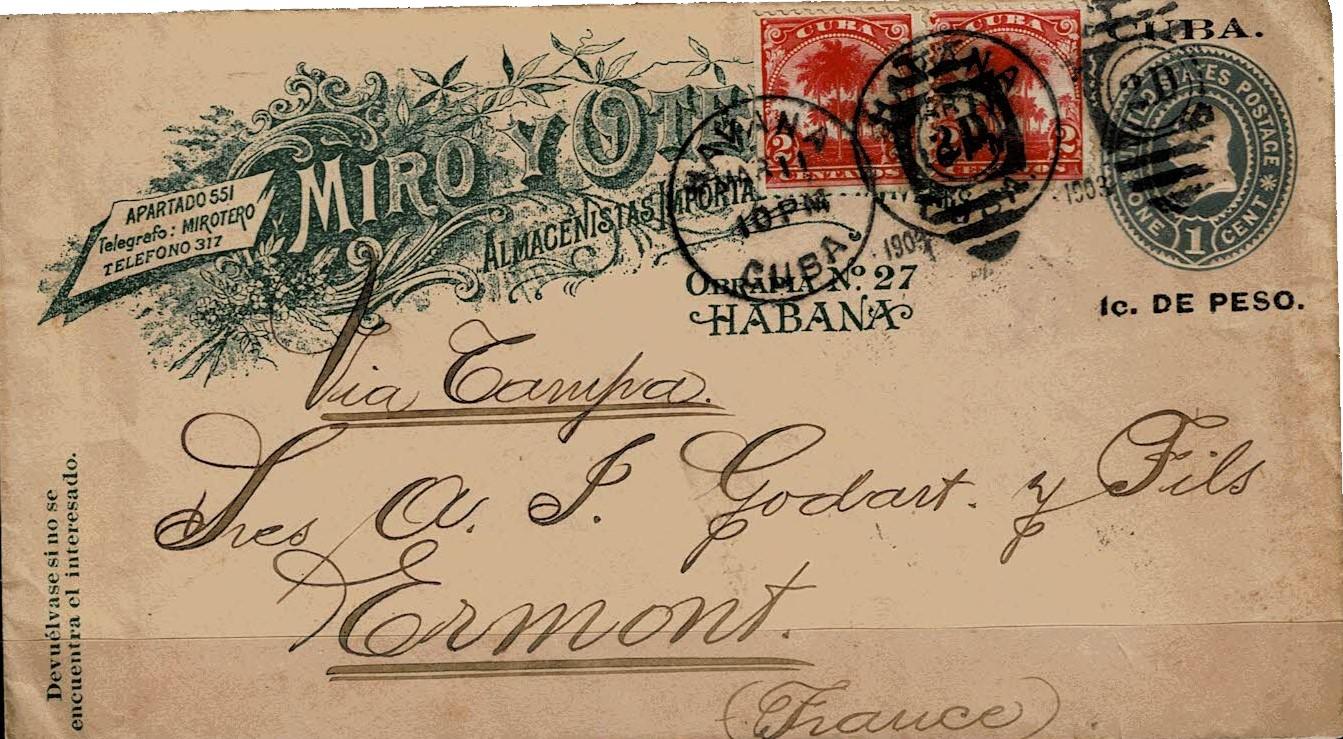 CUBA.
CUBA
CUBA
STATES POSTAGE
ONE 1 CENT
1c. DE PESO.
MIRO Y OT
APARTADO 551
Telegrafo: MIROTERO
TELEFONO 317
ALMACENISTAS IMPORTA
OBRAPIA Nº. 27
HABANA
2 CENTAVOS
2
HAVANA
MAR 11
10 PM
CUBA.
HAVANA
1903
Via Tampa.
Sres A. J. Godart. y Fils
Ermont.
(France)
Devuélvase si no se
encuentra el interesado.